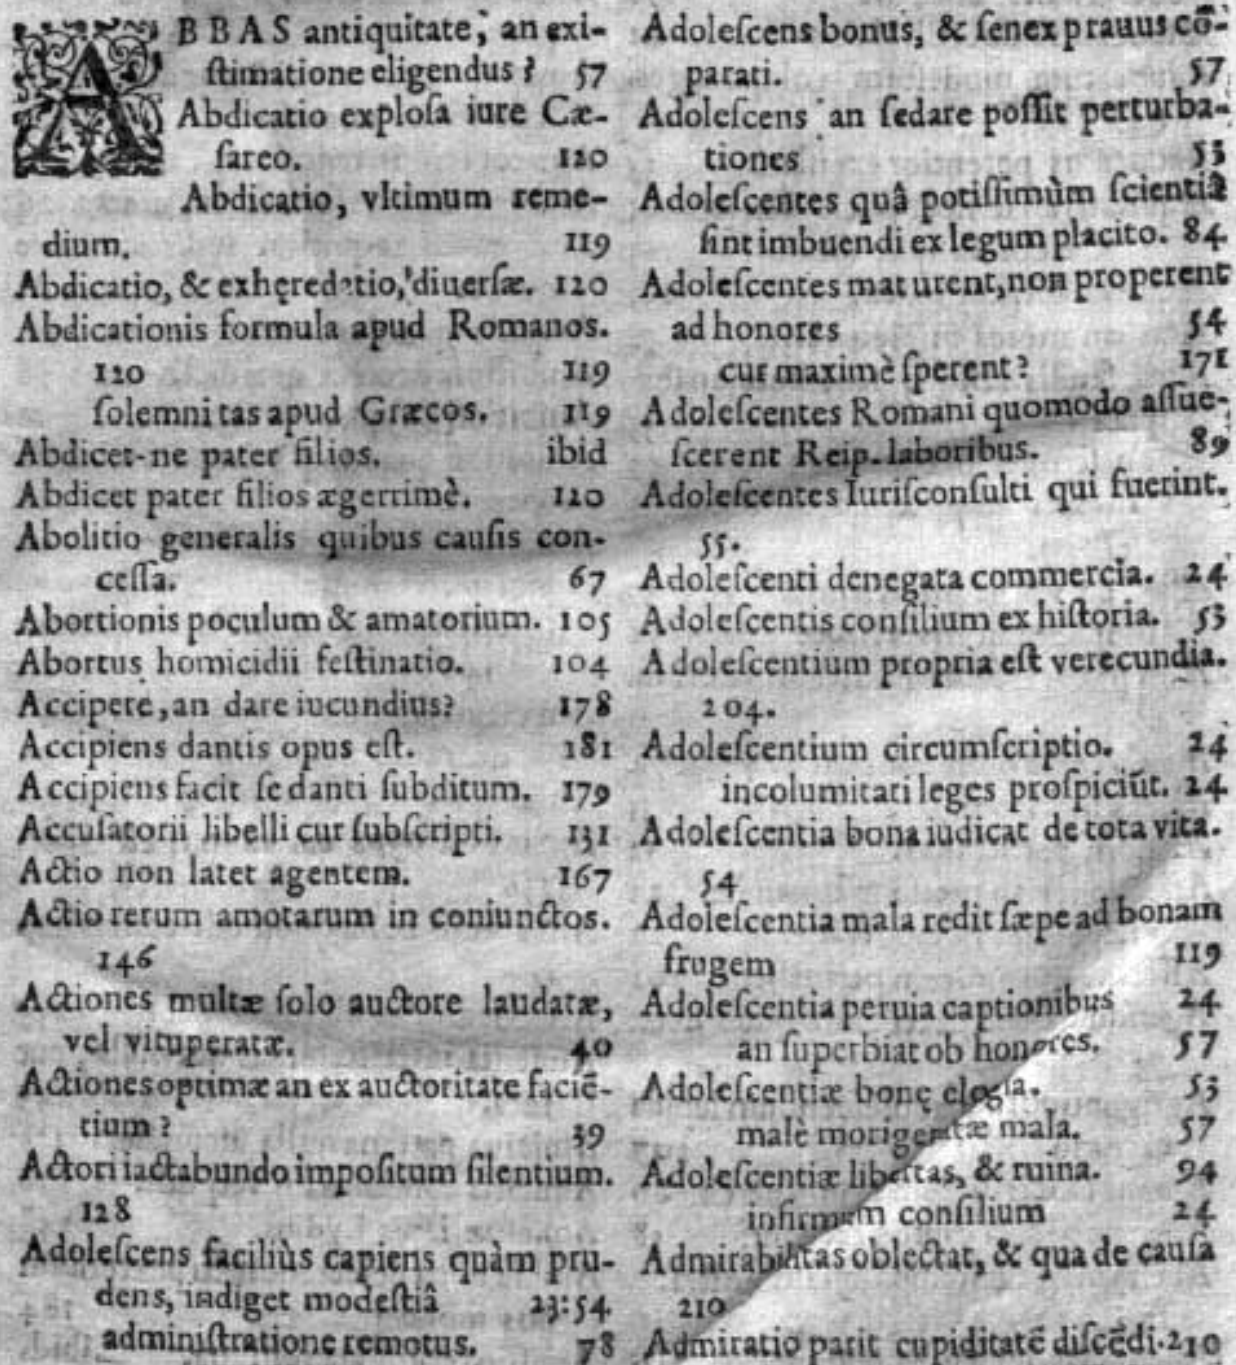 ABBAS antiquitate, an exi-
ſtimatione eligendus? 57
Abdicatio exploſa iure Cæ-
ſareo. 120
Abdicatio, vltimum reme-
dium. 119
Abdicatio, & exhęredatio, diuerſæ. 120
Abdicationis formula apud Romanos.
120 119
ſolemnitas apud Græcos. 119
Abdicet-ne pater filios. ibid
Abdicet pater filios ægerrimè. 120
Abolitio generalis quibus cauſis con-
ceſſa. 67
Abortionis poculum & amatorium. 105
Abortus homicidii feſtinatio. 104
Accipere, an dare iucundius? 178
Accipiens dantis opus eſt. 181
Accipiens facit ſe danti ſubditum. 179
Accuſatorii libelli cur ſubſcripti. 131
Actio non latet agentem. 167
Actio rerum amotarum in coniunctos.
146
Actiones multæ ſolo auctore laudatæ,
vel vituperatæ. 40
Actiones optimæ an ex auctoritate faciē-
tium? 39
Actori iactabundo impoſitum ſilentium.
128
Adoleſcens faciliùs capiens quàm pru-
dens, indiget modeſtiâ 23:54
adminiſtratione remotus. 78
Adoleſcens bonus, & ſenex prauus cō-
parati. 57
Adoleſcens an ſedare poſſit perturba-
tiones 53
Adoleſcentes quâ potiſſimùm ſcientiâ
ſint imbuendi ex legum placito. 84
Adoleſcentes maturent, non properent
ad honores 54
cur maximè ſperent? 171
Adoleſcentes Romani quomodo aſſue-
ſcerent Reip. laboribus. 89
Adoleſcentes Iuriſconſulti qui fuerint.
55.
Adoleſcenti denegata commercia. 24
Adoleſcentis conſilium ex hiſtoria. 53
Adoleſcentium propria eſt verecundia.
204.
Adoleſcentium circumſcriptio. 24
incolumitati leges proſpiciūt. 24
Adoleſcentia bona iudicat de tota vita.
54
Adoleſcentia mala redit ſæpe ad bonam
frugem 119
Adoleſcentia peruia captionibus 24
an ſuperbiat ob honores. 57
Adoleſcentiæ bonę elogia. 53
malè morigeratæ mala. 57
Adoleſcentiæ libertas, & ruina. 94
infirmum conſilium 24
Admirabilitas oblectat, & qua de cauſa
210
Admiratio parit cupiditatē diſcēdi. 210